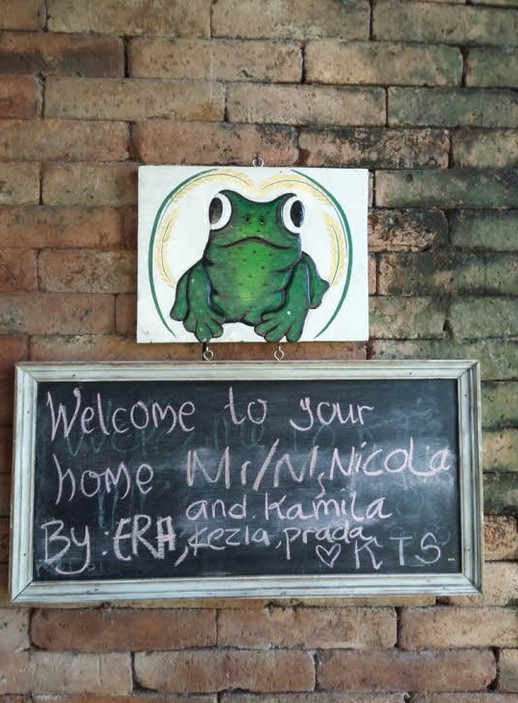 Welcome to your
home Mr/M, Nicola
and Kamila
By: ERA, kezia, prada
♡ KTS